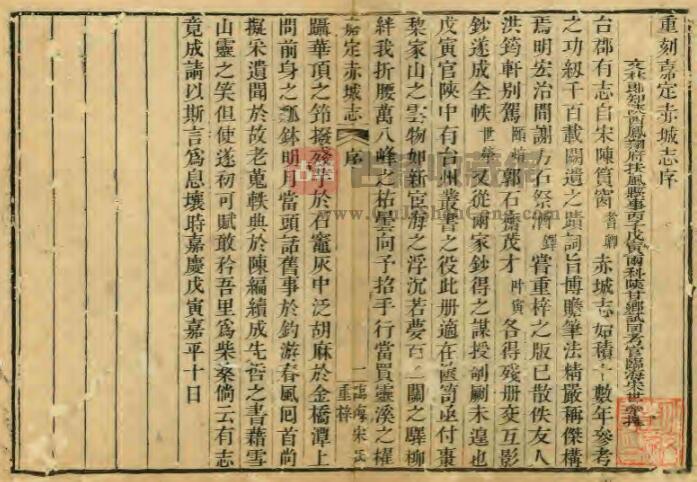 重刻嘉定赤城志序
文林郎知陝西鳳翔府扶風縣事丙子戊寅兩科陝甘鄉試同考官臨海宋世犖撰
台郡有志自宋陳篔窗耆卿赤城志始積十數年參考
之功綴千百載闕遺之蹟詞旨博贍筆法精嚴稱傑構
焉明宏治間謝方石祭酒鐸嘗重梓之版已散佚友人
洪筠軒別駕頤煊郭石齋茂才叶寅各得殘册交互影
鈔遂成全帙世犖又從兩家鈔得之謀授剞劂未遑也
戊寅官陝中有台州叢書之役此册適在篋笥亟付棗
棃家山之雲物如新宦海之浮沉若夢百二關之驛柳
絆我折腰萬八峰之祐曇向予招手行當買靈溪之櫂
嘉定赤城志 序 一 臨海宋氏重梓
躡華頂之筇撥殘芋於石竈灰中泛胡麻於金橋潭上
問前身之瓢鉢明月當頭話舊事於釣游春風回首尚
擬采遺聞於故老蒐軼典於陳編續成先哲之書藉雪
山靈之笑但使遂初可賦敢矜吾里爲柴桑倘云有志
竟成請以斯言爲息壤時嘉慶戊寅嘉平十日
古籍收藏網
GuJiShouCang.com